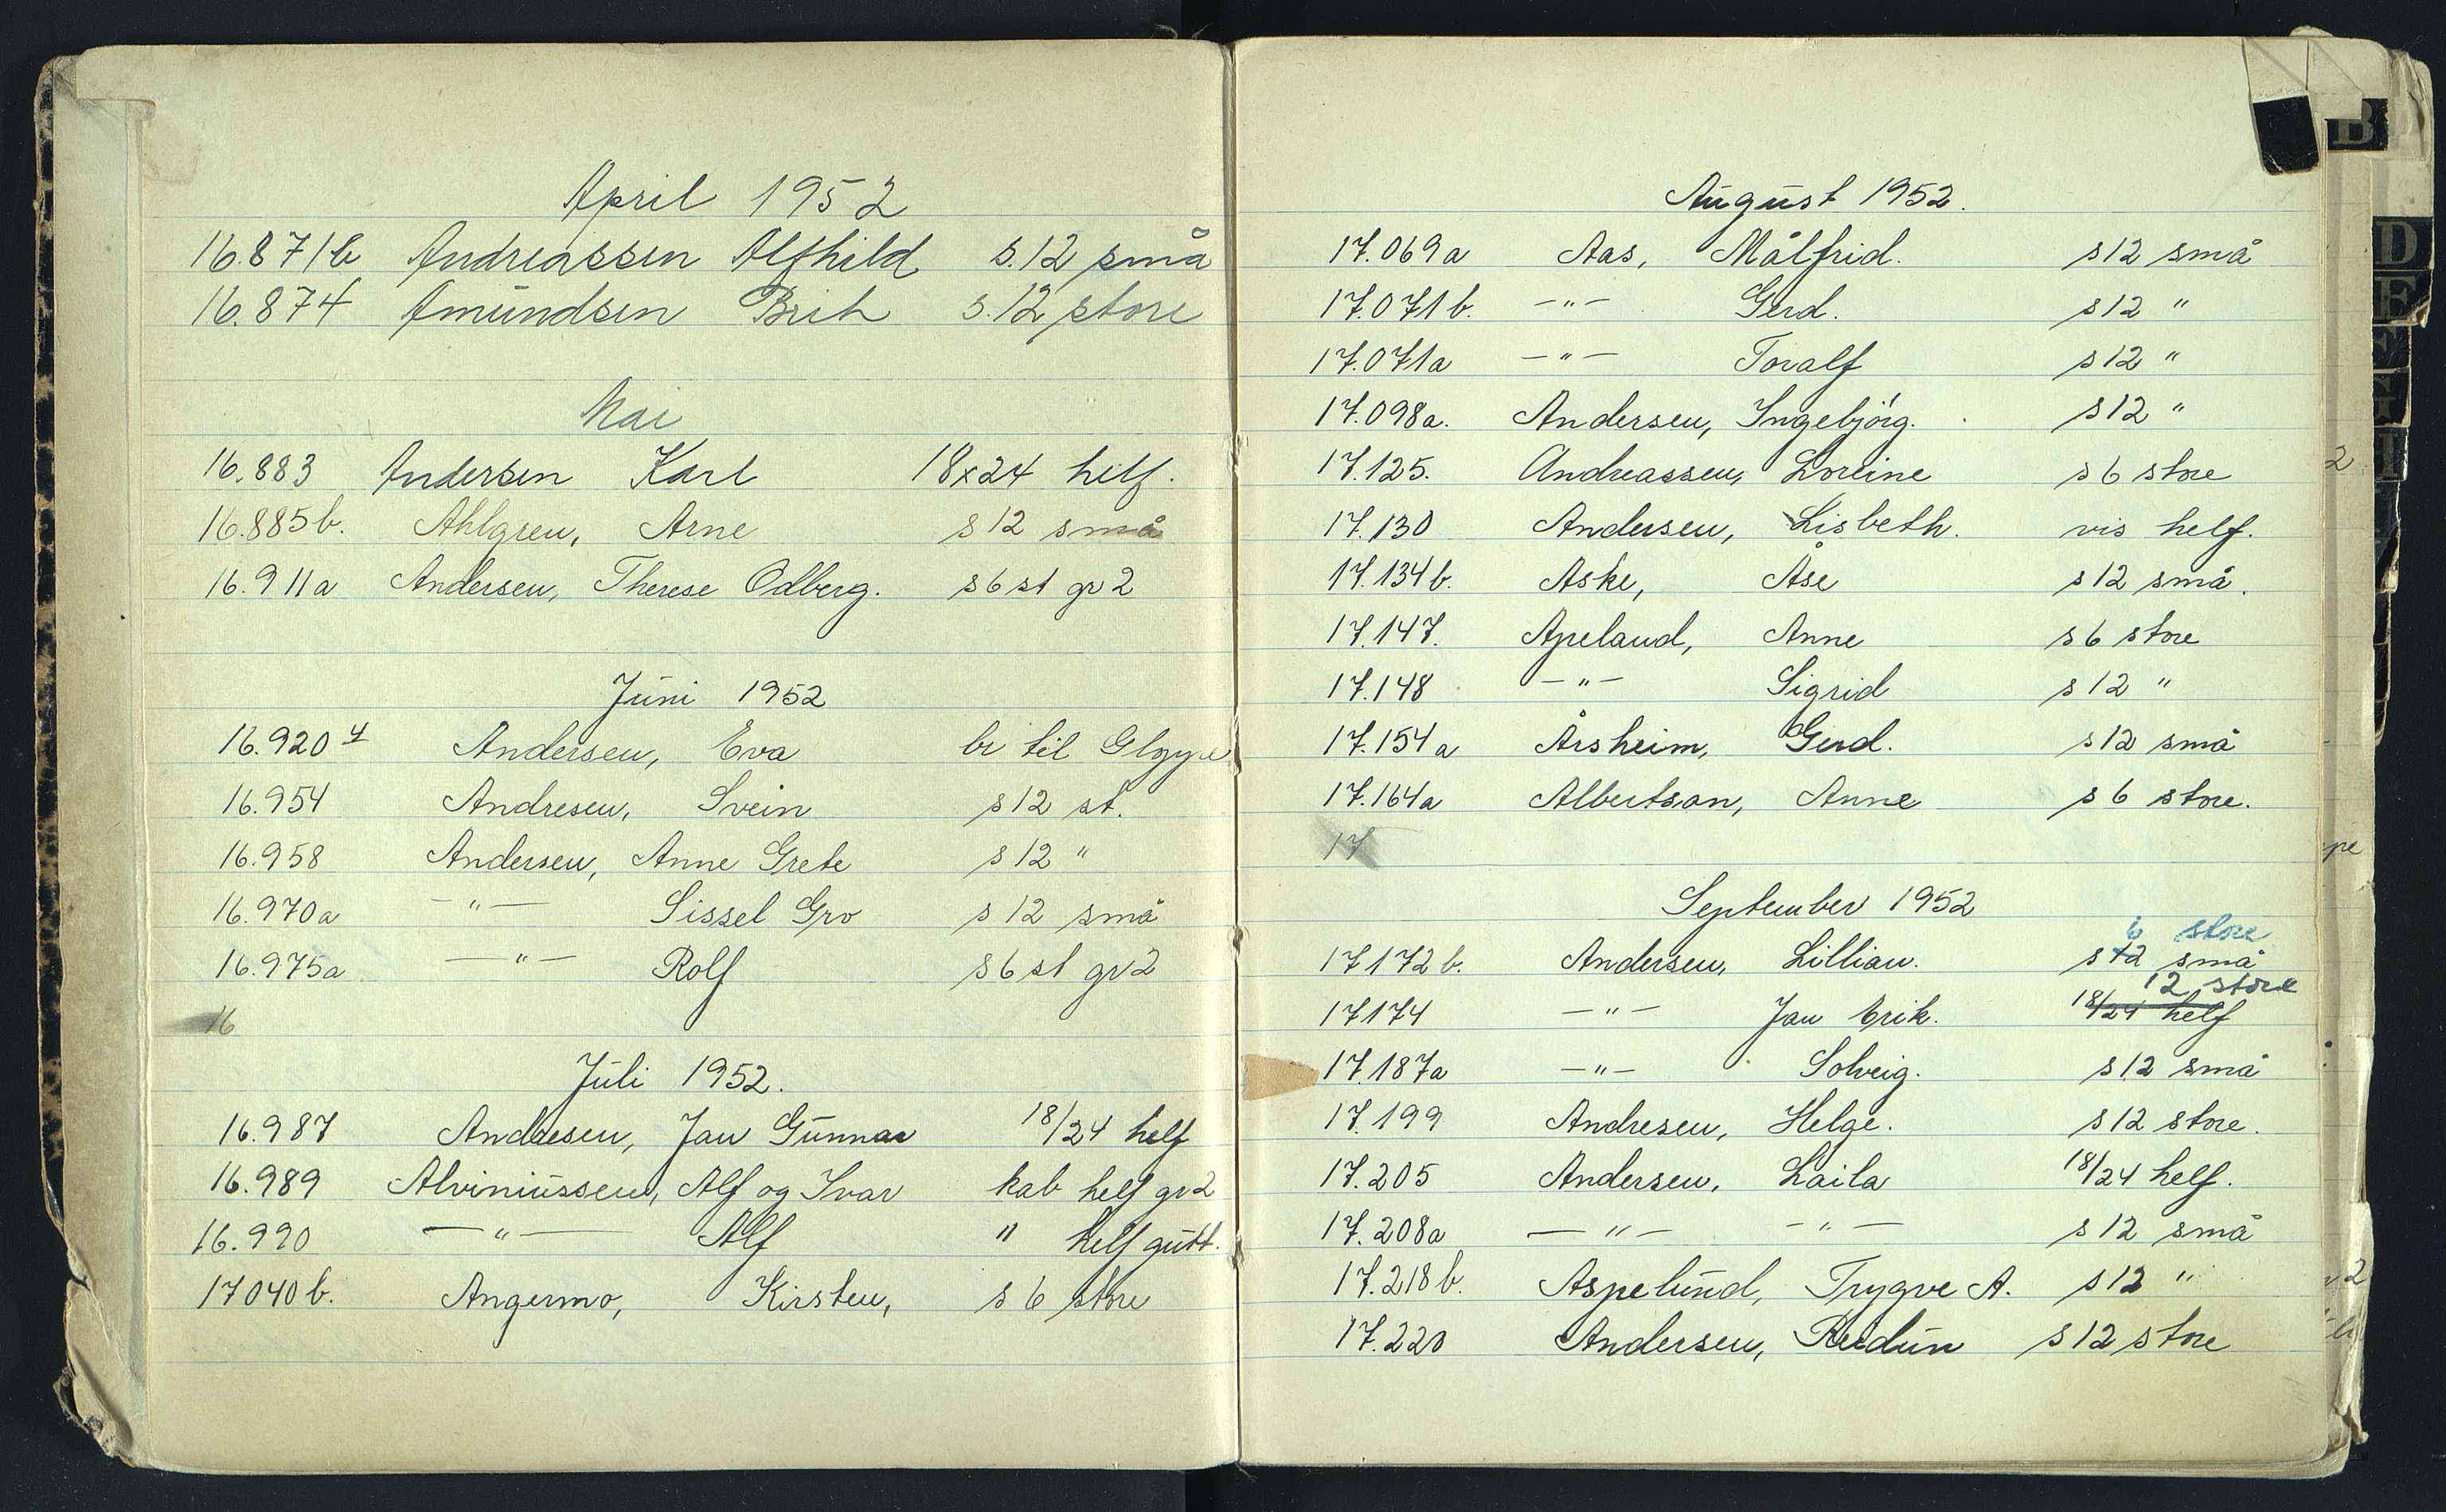 April 1952
16.871b Andreassen Alfhild s.12 små
16.874 Amundsen Brit s.12 store
Mai
16.883 Andersen Karl 18x24 helf.
16.885b. Ahlgren, Arne s 12 små
16.911a Andersen, Therese Odberg. s 6 st gr 2
Juni 1952
16.920 4 Andersen, Eva br til Gloppe
16.954 Andresen, Svein s 12 st.
16.958 Andersen, Anne Grete s 12 "
16.970a — " — Sissel Gro s 12 små
16.975a — " — Rolf s 6 st gr 2
16
Juli 1952.
16.987 Andresen, Jan Gunnar 18/24 helf
16.989 Alviniussen, Alf og Ivar kab helf gr 2
16.990 — " — Alf " helf gutt.
17040b. Angermo, Kirsten, s 6 store
August 1952.
17.069a Aas, Målfrid. s12 små
17.071b. — " — Gerd. s12 "
17.071a — " — Toralf s 12 "
17.098a. Andersen, Ingebjörg. s12 "
17.125. Andreassen, Loreine s 6 store
17.130 Andersen, Lisbeth. vis helf.
17.134b. Aske, Åse s 12 små.
17.147. Apeland, Anne s 6 store
17.148 — " — Sigrid s 12 "
17.154a Årsheim, Gerd. s 12 små
17.164a Albertson, Anne s 6 store.
17
September 1952
6 store
17172b. Andersen, Lillian. s 12 små
12 store
17174 — " — Jan Erik. 18/24 helf
17.187a — " — Solveig. s 12 små
17.199 Andresen, Helge. s 12 store.
17.205 Andersen, Laila 18/24 helf.
17.208a — " — — " — s 12 små
17.218b. Aspelund, Trygve A. s 12 "
17.220 Andersen, Reidun s 12 store
B
D
E